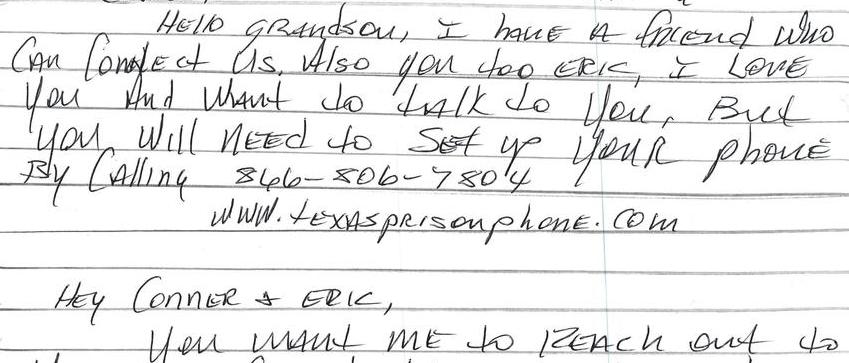 Hello grandson, I have a friend who
Can Connect Us. Also you too Eric, I Love
You And Want to talk to You, But
you will need to Set up your phone
By Calling 866-806-7804
www.texasprisonphone.com
Hey Conner & Eric,
You want me to Reach out to